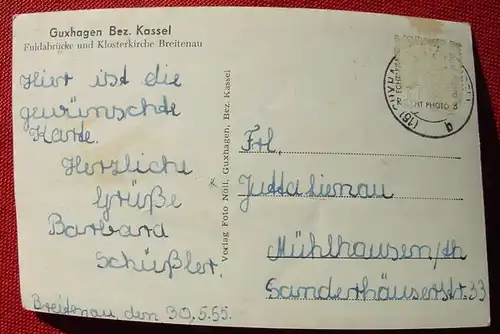 Guxhagen Bez. Kassel
Fuldabrücke und Klosterkirche Breitenau
Hier ist die
gewünschte
Karte.
Herzliche
Grüße
Barbara
Schüßler.
Breitenau, den 30.5.55.
Verlag Foto Nöll, Guxhagen, Bez. Kassel
ECHT PHOTO
(16)
Frl.
Jutta Lienau
Mühlhausen/Th
Sanderhäuserstr. 33